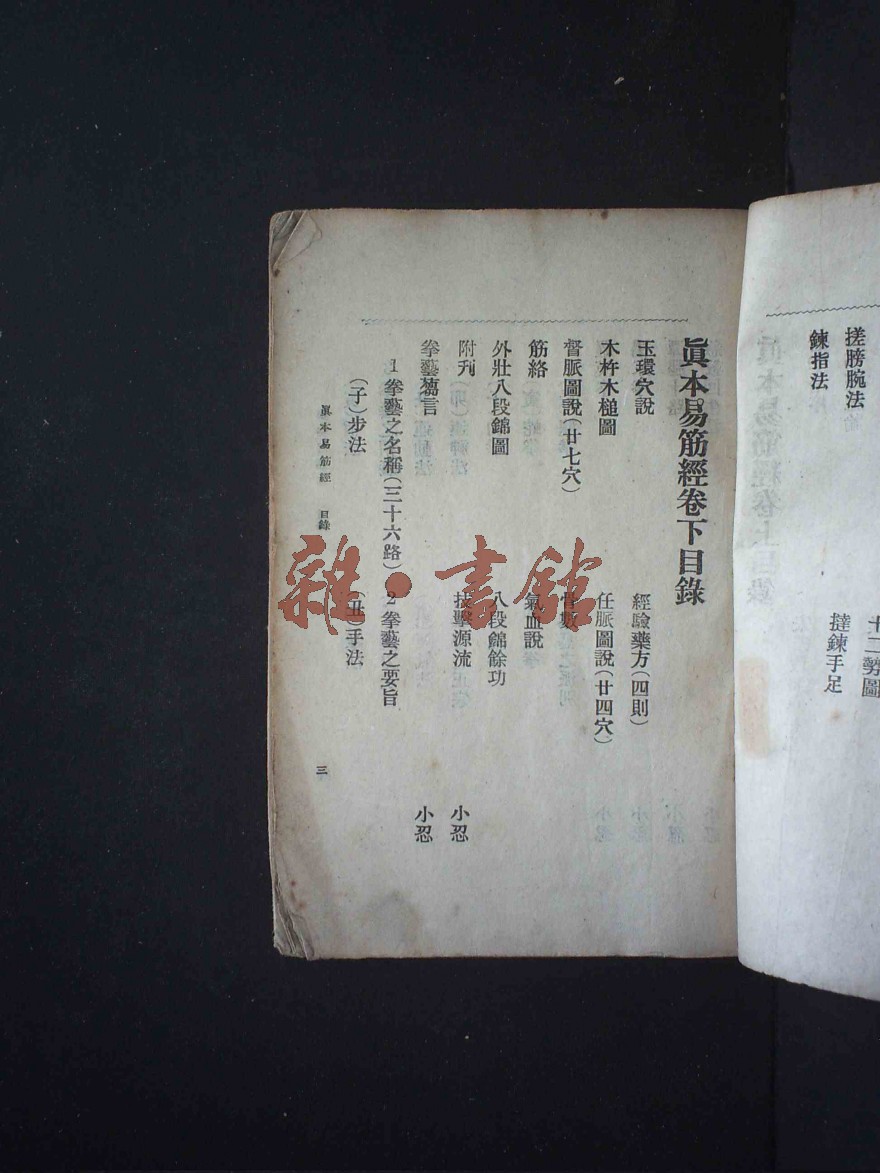 搓膀腕法
十二勢圖
鍊指法
撻鍊手足
眞本易筋經卷下目錄
玉環穴說
經驗藥方(四則)
木杵木槌圖
任脈圖說(廿四穴)
督脈圖說(廿七穴)
骨數
筋絡
氣血說
外壯八段錦圖
八段錦餘功
附刋
技擊源流
小忍
拳藝蒭言
小忍
1拳藝之名稱(三十六路)
2拳藝之要旨
(子)步法
(丑)手法
眞本易筋經 目錄
三
雜·書館